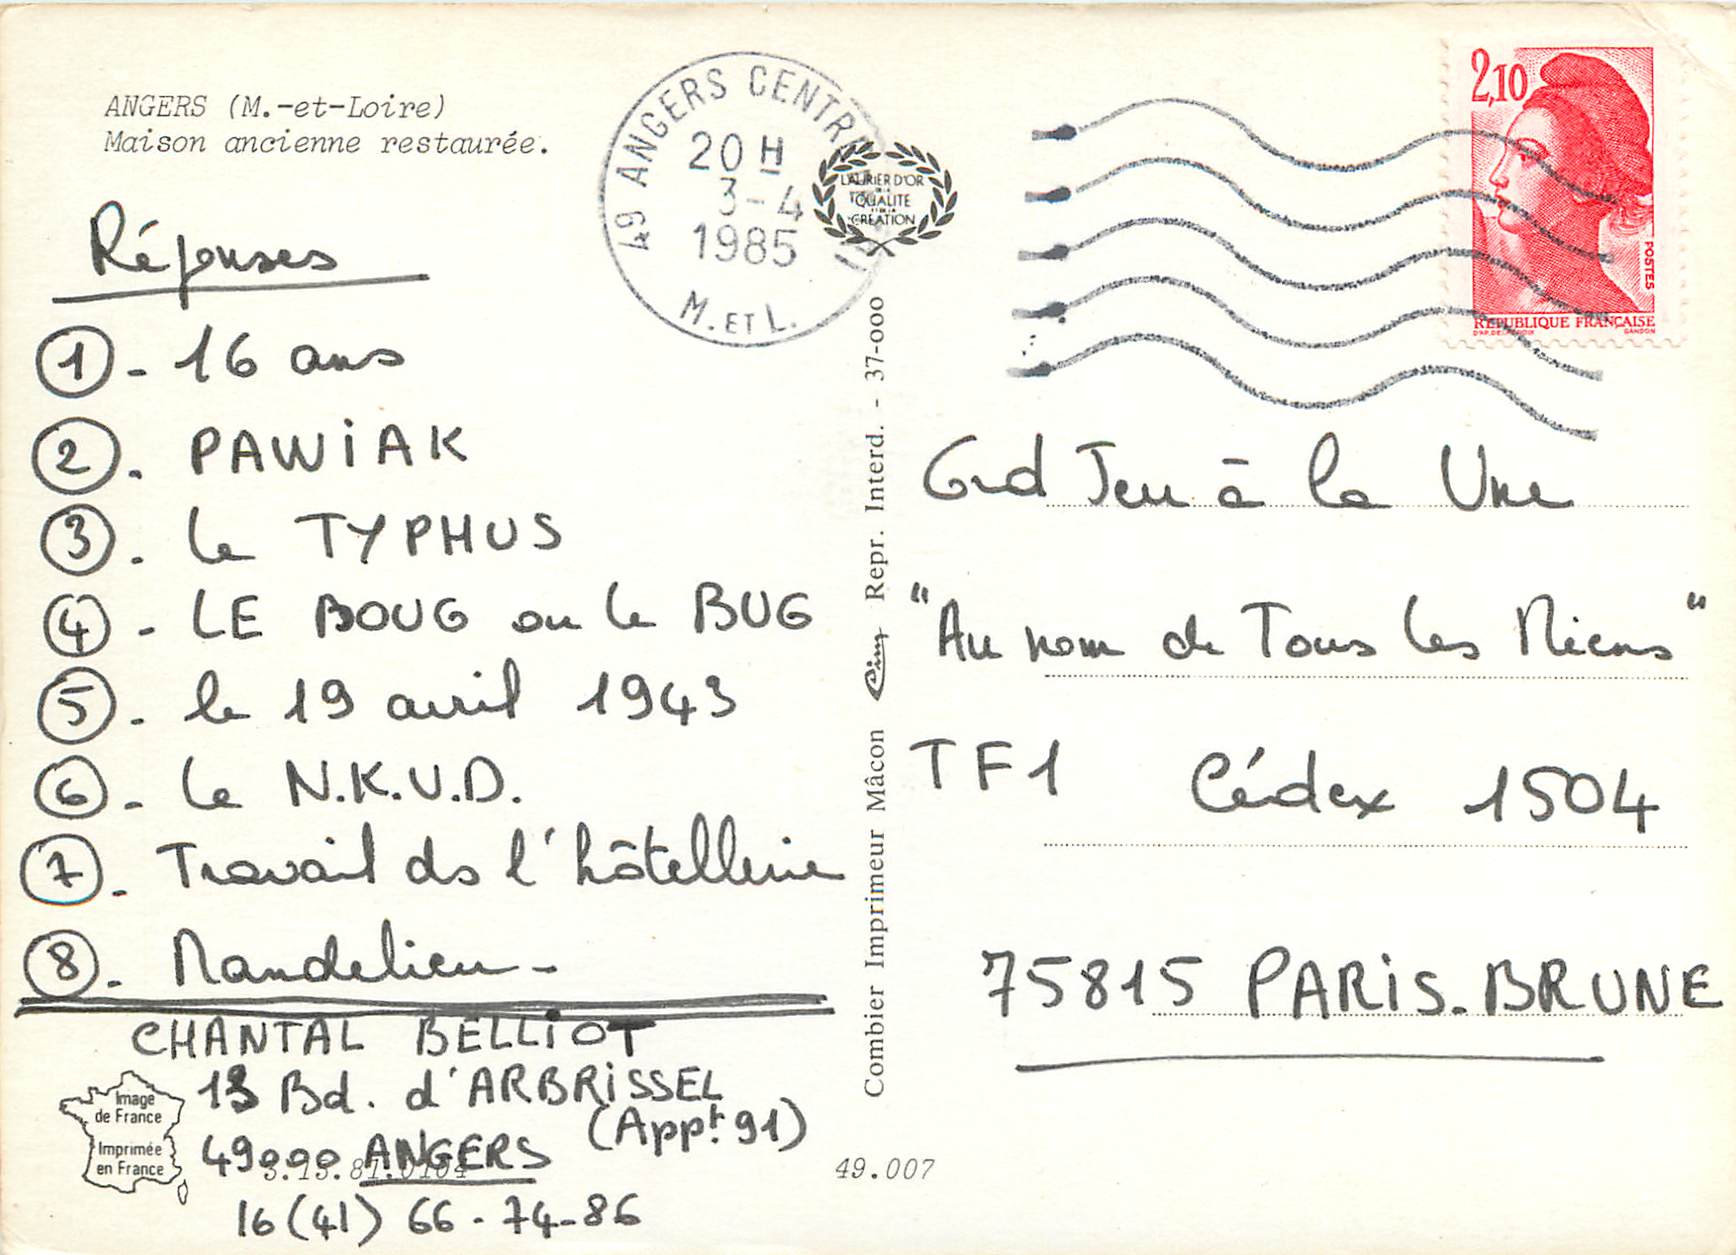 ANGERS (M.-et-Loire)
Maison ancienne restaurée.
Réponses
① - 16 ans
②. PAWiAK
③. le TYPHUS
④ - LE BOUG ou le BUG
⑤. le 19 avril 1943
⑥ - Le N.K.V.D.
⑦. Travail ds l'hôtellerie
⑧. Mandelieu -
CHANTAL BELLiOT
13 Bd. d'ARBRiSSEL
(Appt. 91)
49000 ANGERS
16 (41) 66 - 74 - 86
Image
de France
Imprimée
en France
3.13.81.0104
49.007
49 ANGERS CENTR
20 H
3-4
1985
M. ET L.
LAURIER D'OR
DE LA
QUALITÉ
ET DE LA
CRÉATION
Combier Imprimeur Mâcon Cim Repr. Interd. - 37-000
2,10
POSTES
REPUBLIQUE FRANÇAISE
D'AP. DELACROIX GANDON
Grd Jeu à la Une
"Au nom de Tous les Miens"
TF1 Cédex 1504
75815 PARiS. BRUNE